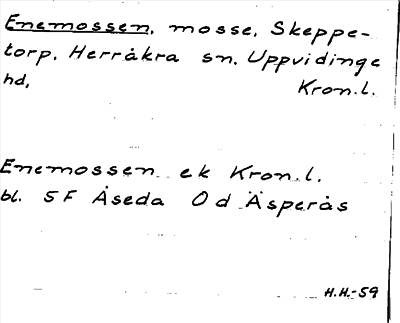 Enemossen, mosse, Skeppe-
torp, Herråkra sn, Uppvidinge
hd, Kron.l.
Enemossen ek Kron.l.
bl. 5F Åseda 0 d Äsperås
H.H.-59